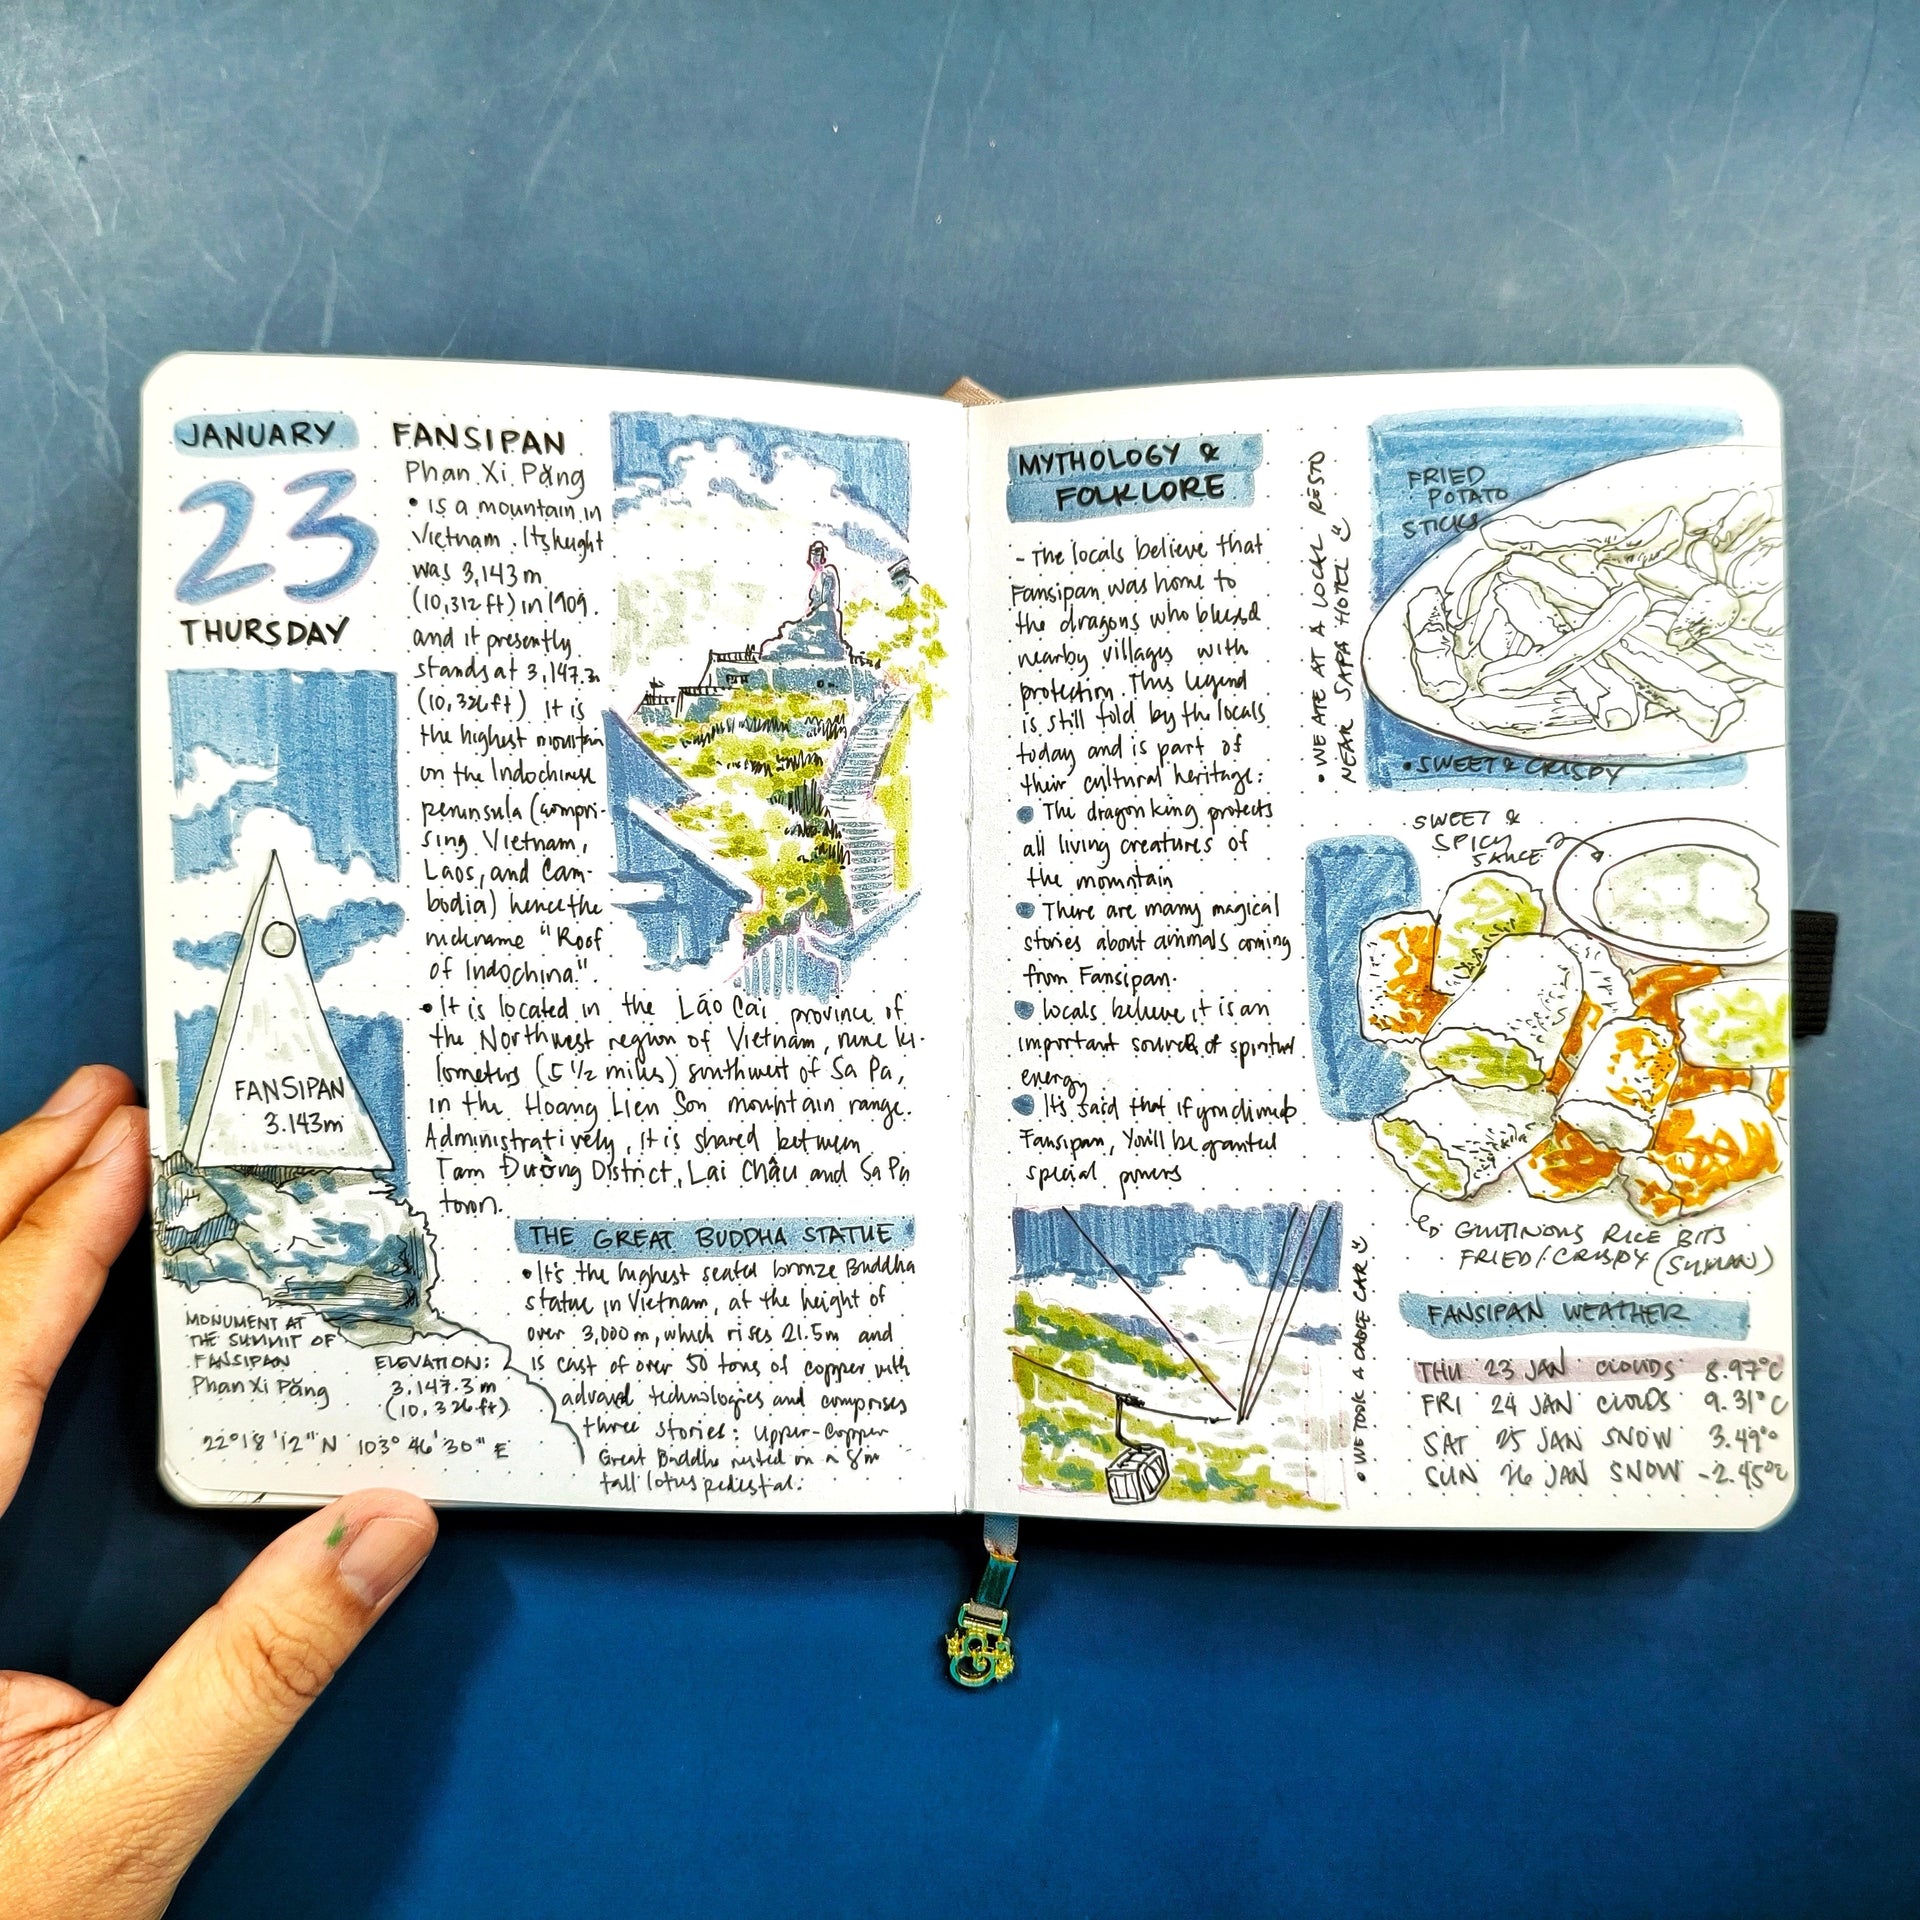 JANUARY
23
THURSDAY
FANSIPAN
Phan Xi Păng
• is a mountain in
Vietnam. Its height
was 3,143 m
(10,312 ft) in 1909.
and it presently
stands at 3,147.3m
(10,326 ft) It is
the highest mountain
on the Indochinese
peninsula (compri-
sing Vietnam,
Laos, and Cam-
bodia) hence the
nickname "Roof
of Indochina".
• It is located in the Lão Cai province of
the Northwest region of Vietnam, nine ki-
lometers (5 1/2 miles) southwest of Sa Pa,
in the Hoang Lien Son mountain range.
Administratively, it is shared between
Tam Đường District, Lai Châu and Sa Pa
town.
FANSIPAN
3.143m
MONUMENT AT
THE SUMMIT OF
FANSIPAN
Phan Xi Păng
ELEVATION:
3,147.3 m
(10,326 ft)
22°18'12"N 103°46'30"E
THE GREAT BUDDHA STATUE
• It's the highest seated bronze Buddha
statue in Vietnam, at the height of
over 3,000m, which rises 21.5m and
is cast of over 50 tons of copper with
technologies and comprises
three stories: Upper-Copper
Great Buddha rested on a 8m
tall lotus pedestal.
MYTHOLOGY &
FOLKLORE
- The locals believe that
Fansipan was home to
the dragons who blessed
nearby villages with
protection. This legend
is still told by the locals
today and is part of
their cultural heritage:
• The dragon king protects
all living creatures of
the mountain
• There are many magical
stories about animals coming
from Fansipan.
• Locals believe it is an
important source of spiritual
energy
• It's said that if you climb
Fansipan, You'll be granted
special powers
• WE ATE AT A LOCAL RESTO
NEAR SAPA HOTEL
FRIED
POTATO
STICKS
• SWEET & CRISPY
SWEET &
SPICY
SAUCE
GLUTINOUS RICE BITS
FRIED/CRISPY (SUMAN)
• WE TOOK A CABLE CAR
FANSIPAN WEATHER
THU 23 JAN CLOUDS 8.97°C
FRI 24 JAN CLOUDS 9.31°C
SAT 25 JAN SNOW 3.49°C
SUN 26 JAN SNOW -2.45°C